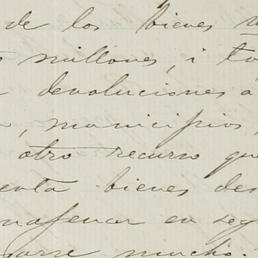 de los bienes
millones, i
devoluciones á
municipios,
otro recurso que
bienes des
en seg
mucho.